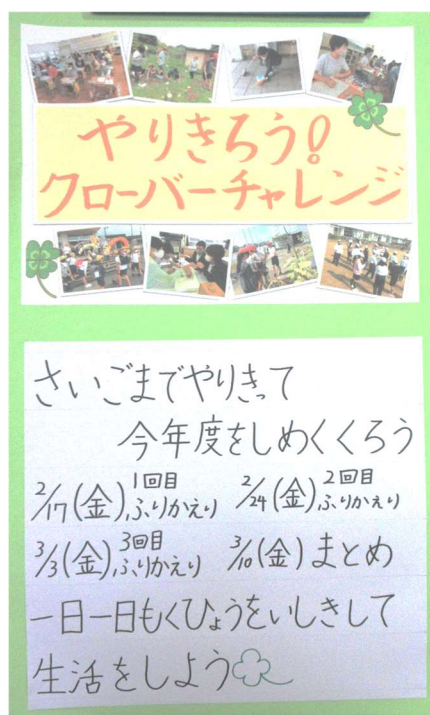 やりきろう!
クローバーチャレンジ
さいごまでやりきって
今年度をしめくくろう
2/17(金),1回目ふりかえり 2/24(金),2回目ふりかえり
3/3(金),3回目ふりかえり 3/10(金)まとめ
一日一日もくひょうをいしきして
生活をしよう